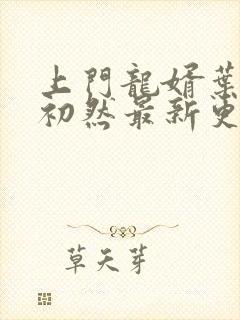 上門龍婿葉
初然最新更
草天芽